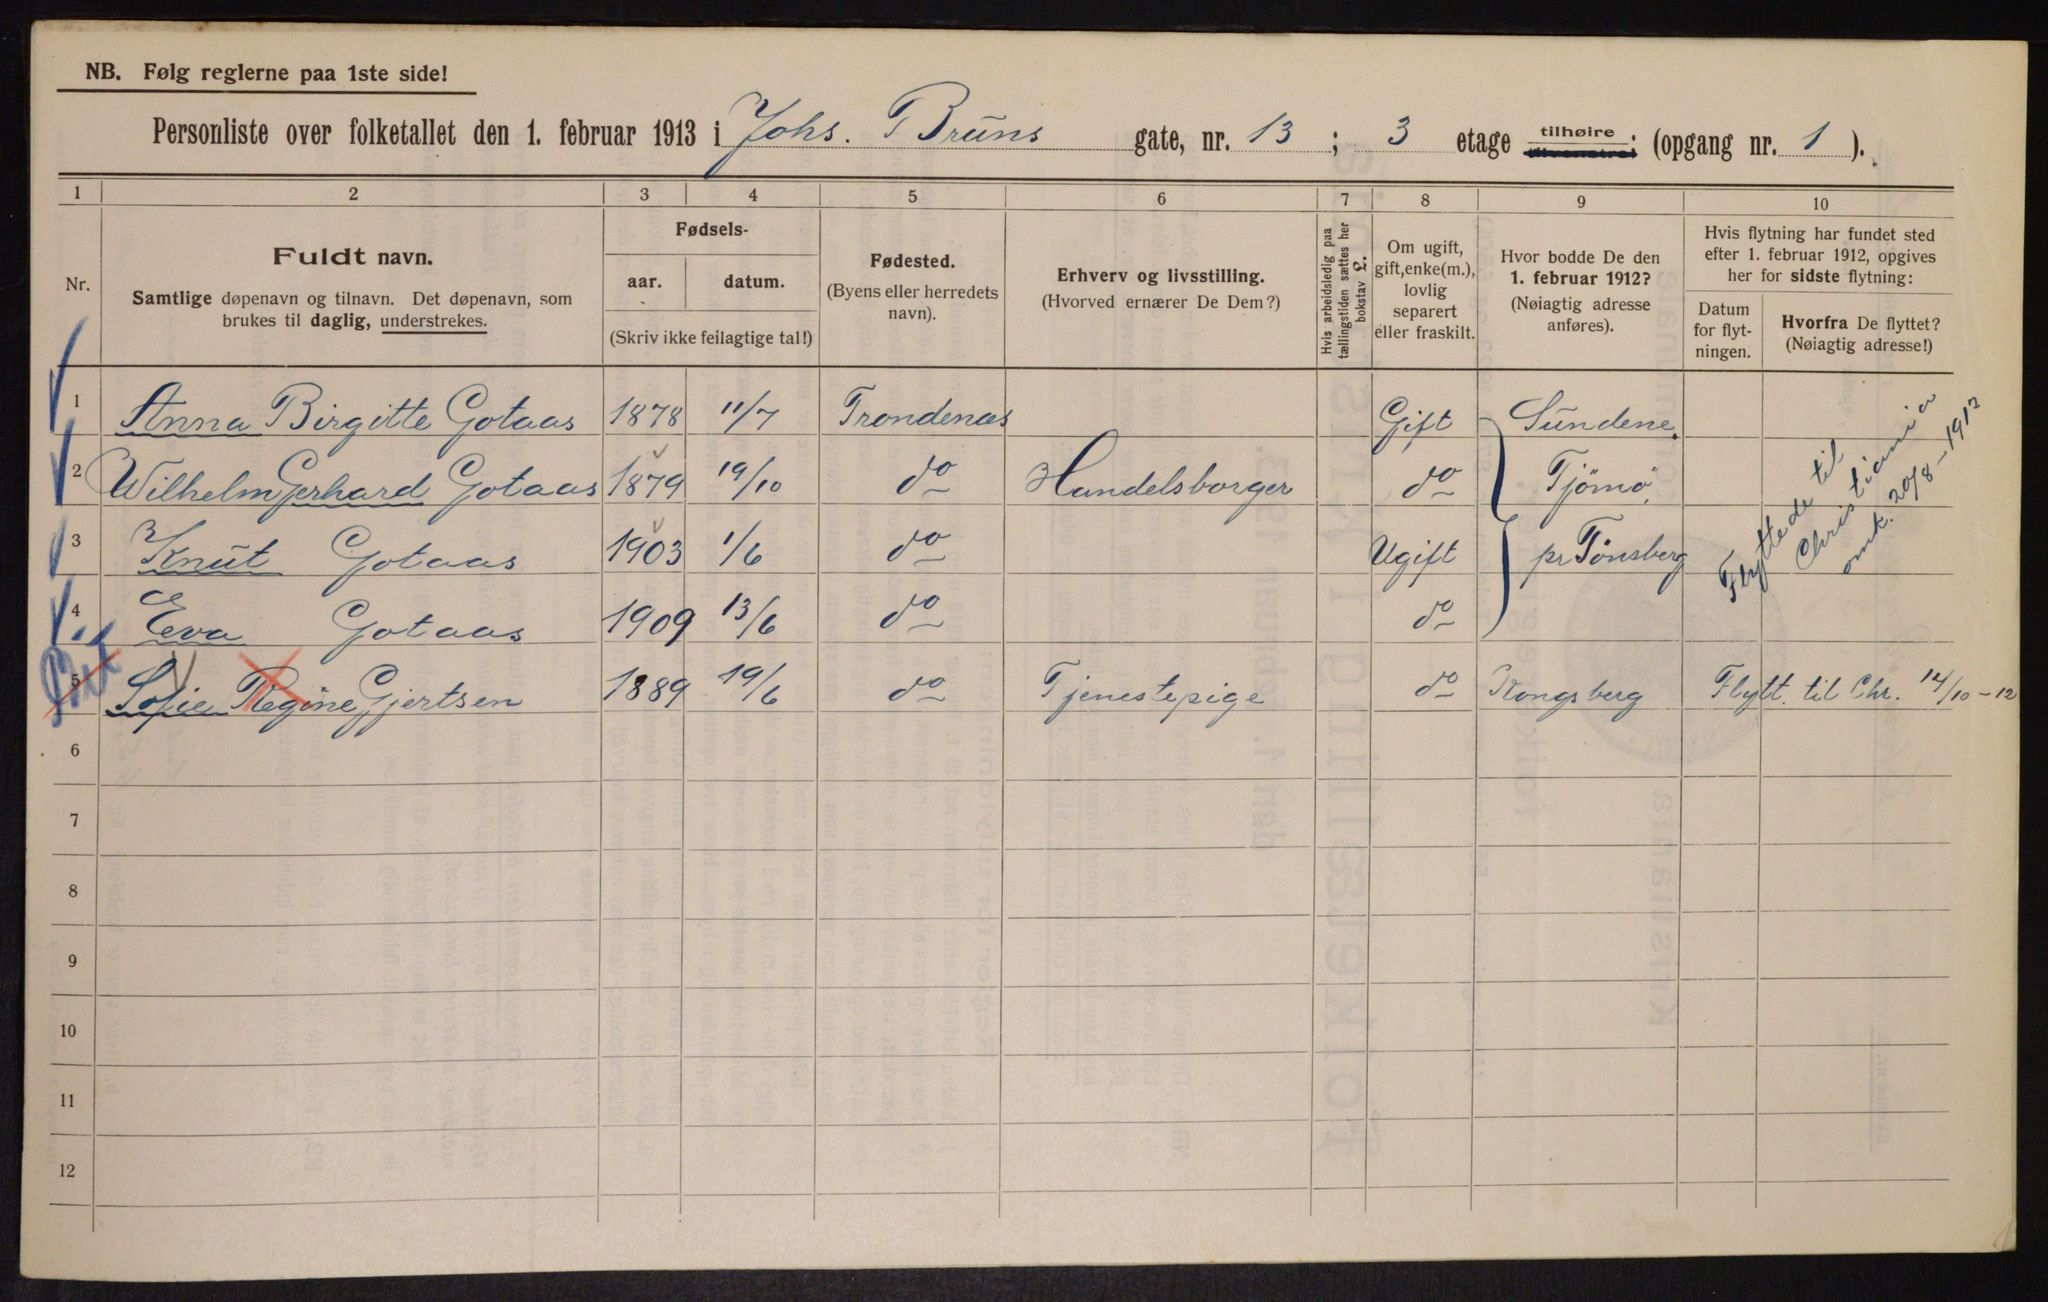 NB. Følg reglerne paa 1ste side!
Personliste over folketallet den 1. februar 1913 i Johs. Bruns gate, nr. 13 ; 3 etage tilhøire tilvenstre : (opgang nr. 1 ).
1 2 3 4 5 6 7 8 9 10
Nr.
Fuldt navn.
Samtlige døpenavn og tilnavn. Det døpenavn, som
brukes til daglig, understrekes.
Fødsels-
aar. datum.
(Skriv ikke feilagtige tal!)
Fødested.
(Byens eller herredets
navn).
Erhverv og livsstilling.
(Hvorved ernærer De Dem?)
Hvis arbeidsledig paa
tællingstiden sættes her
bokstav L.
Om ugift,
gift, enke(m.),
lovlig
separert
eller fraskilt.
Hvor bodde De den
1. februar 1912?
(Nøiagtig adresse
anføres).
Hvis flytning har fundet sted
efter 1. februar 1912, opgives
her for sidste flytning:
Datum
for flyt-
ningen.
Hvorfra De flyttet?
(Nøiagtig adresse!)
1 Anna Birgitte Gotaas 1878 11/7 Trondenæs Gift Sundene,
2 Wilhelm Gerhard Gotaas 1879 19/10 do Handelsborger do Tjömö,
3 Knut Gotaas 1903 1/6 do Ugift pr Tönsberg
4 Eva Gotaas 1909 13/6 do do
Flyttede til
Christiania
omk. 20/8-1912
5 Sofie Regine Gjertsen 1889 19/6 do Tjenestepige do Kongsberg Flytt. til Chr. 14/10-12
6
7
8
9
10
11
12